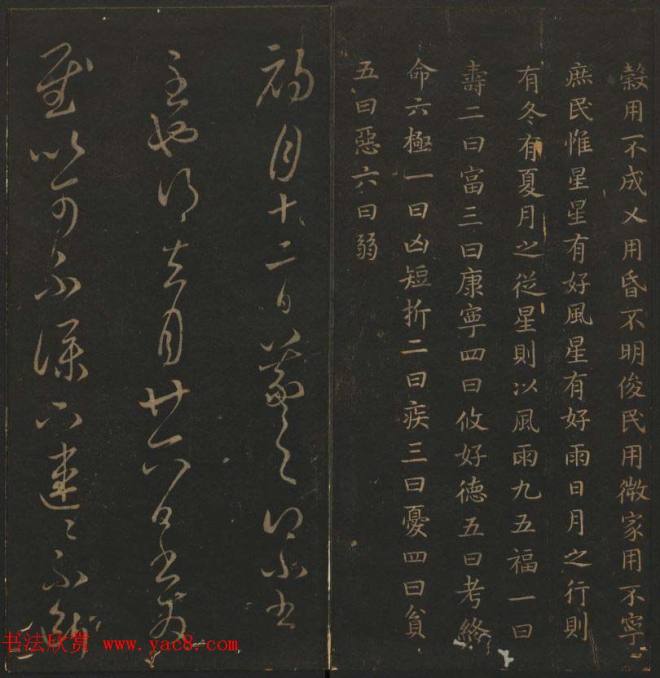 穀用不成乂用昏不明俊民用微家用不寧
庶民惟星星有好風星有好雨日月之行則
有冬有夏月之從星則以風雨九五福一曰
壽二曰富三曰康寧四曰攸好德五曰考終
命六極一曰凶短折二曰疾三曰憂四曰貧
五曰惡六曰弱
初月十二日羲之
得去月廿六日書為
慰
书法欣赏 www.yac8.com